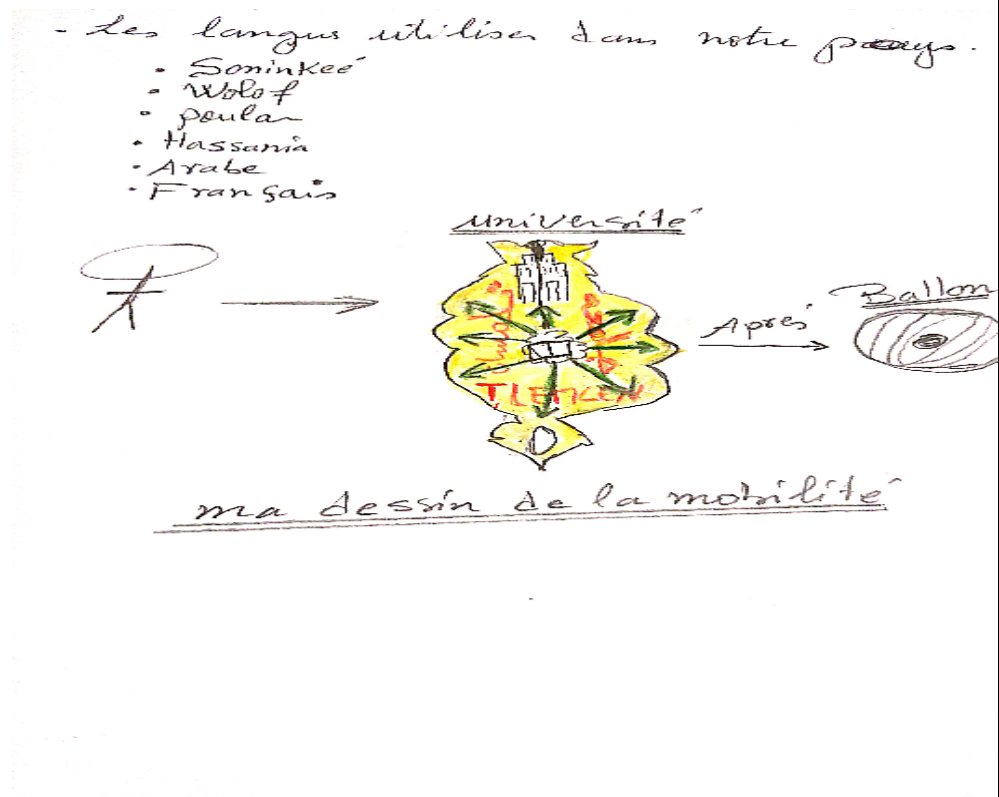 - Les langus utiliser dans notre pays.
• Soninkeé
• Wolof
• poular
• Hassania
• Arabe
• Français
université
TLEMCEN
Après
Ballon
ma dessin de la mobilité